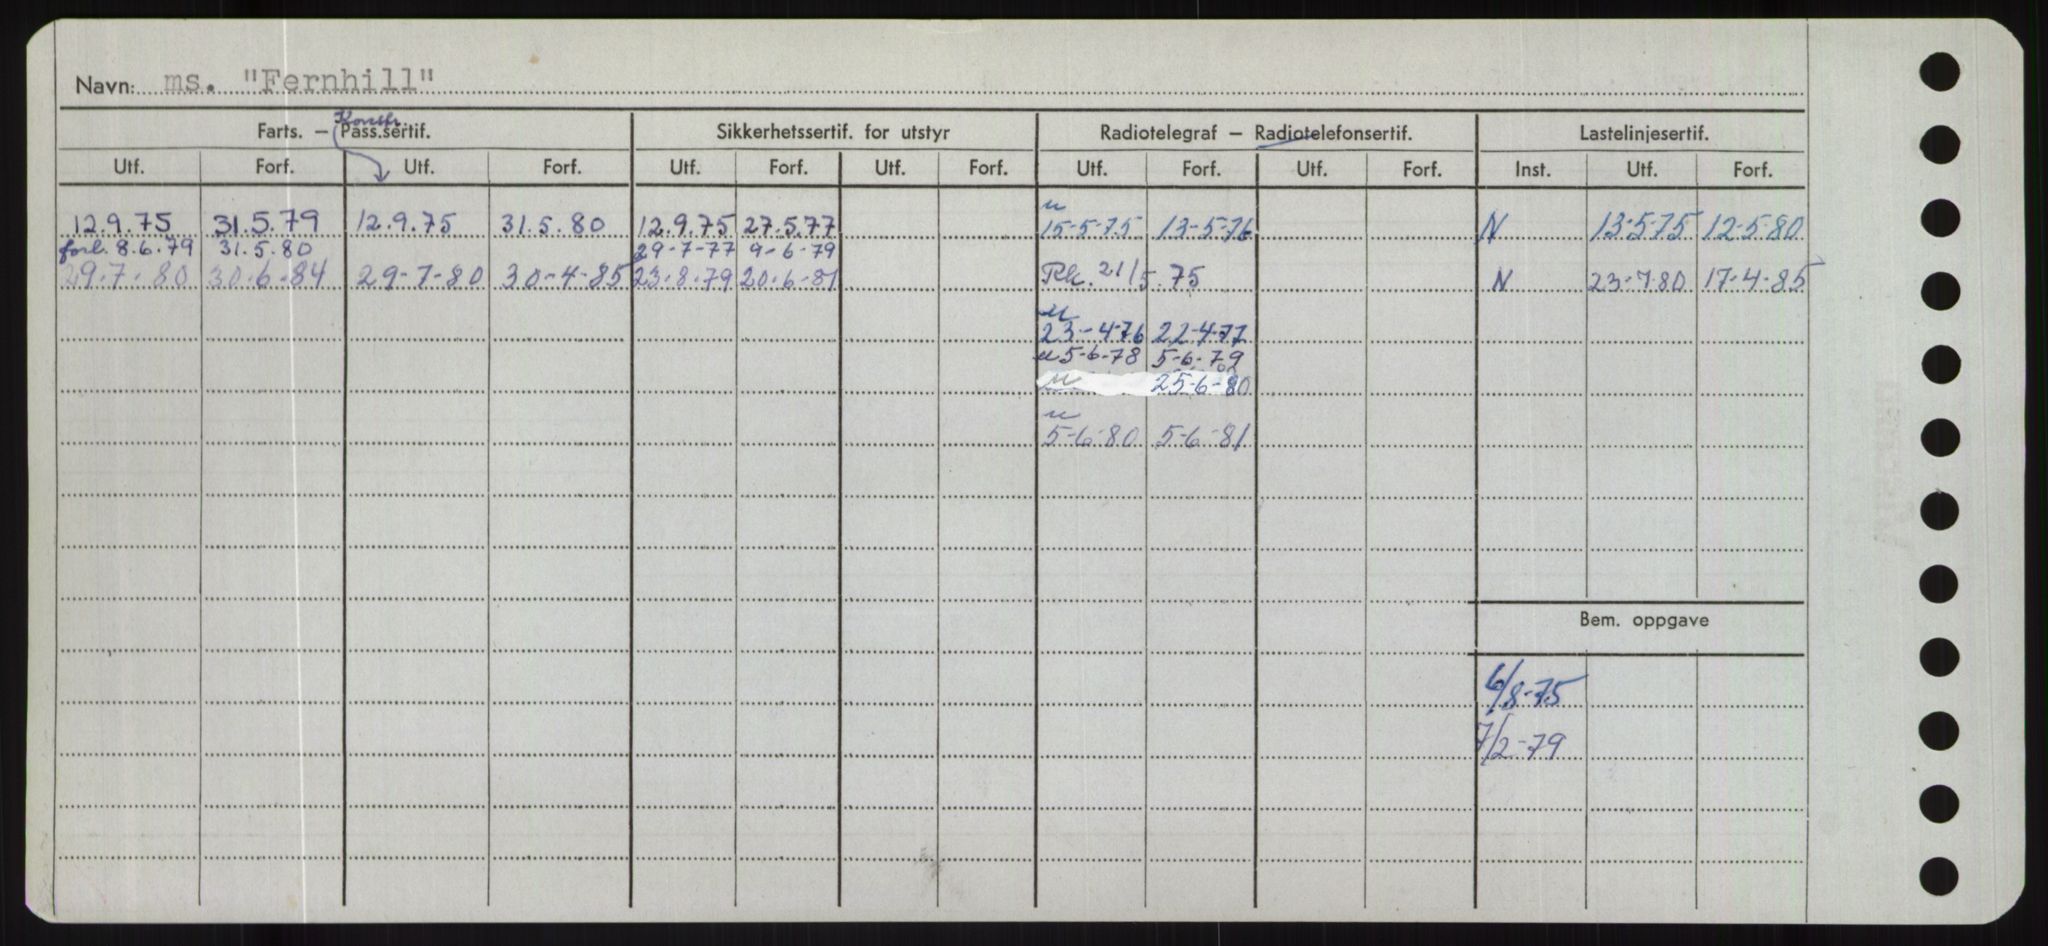 Navn: ms. "Fernhill"
Farts. – Pass.sertif. Konstr. Sikkerhetssertif. for utstyr Radiotelegraf – Radiotelefonsertif. Lastelinjesertif.
Utf. Forf. Utf. Forf. Utf. Forf. Utf. Forf. Utf. Forf. Utf. Forf. Inst. Utf. Forf.
u
12.9.75 31.5.79 12.9.75 31.5.80 12.9.75 27.5.77 15-5-75 13-5-76 N 13-5-75 12-5-80
forl. 8.6.79 31.5.80 29-7-77 9-6-79
29.7.80 30.6.84 29-7-80 30-4-85 23.8.79 20.6.81 Rk. 21/5.75 N 23-7-80 17-4-85
u
23-4-76 22-4-77
u 5-6-78 5-6-79
u 25-6-80
u
5-6-80 5-6-81
Bem. oppgave
6/8-75
7/2-79